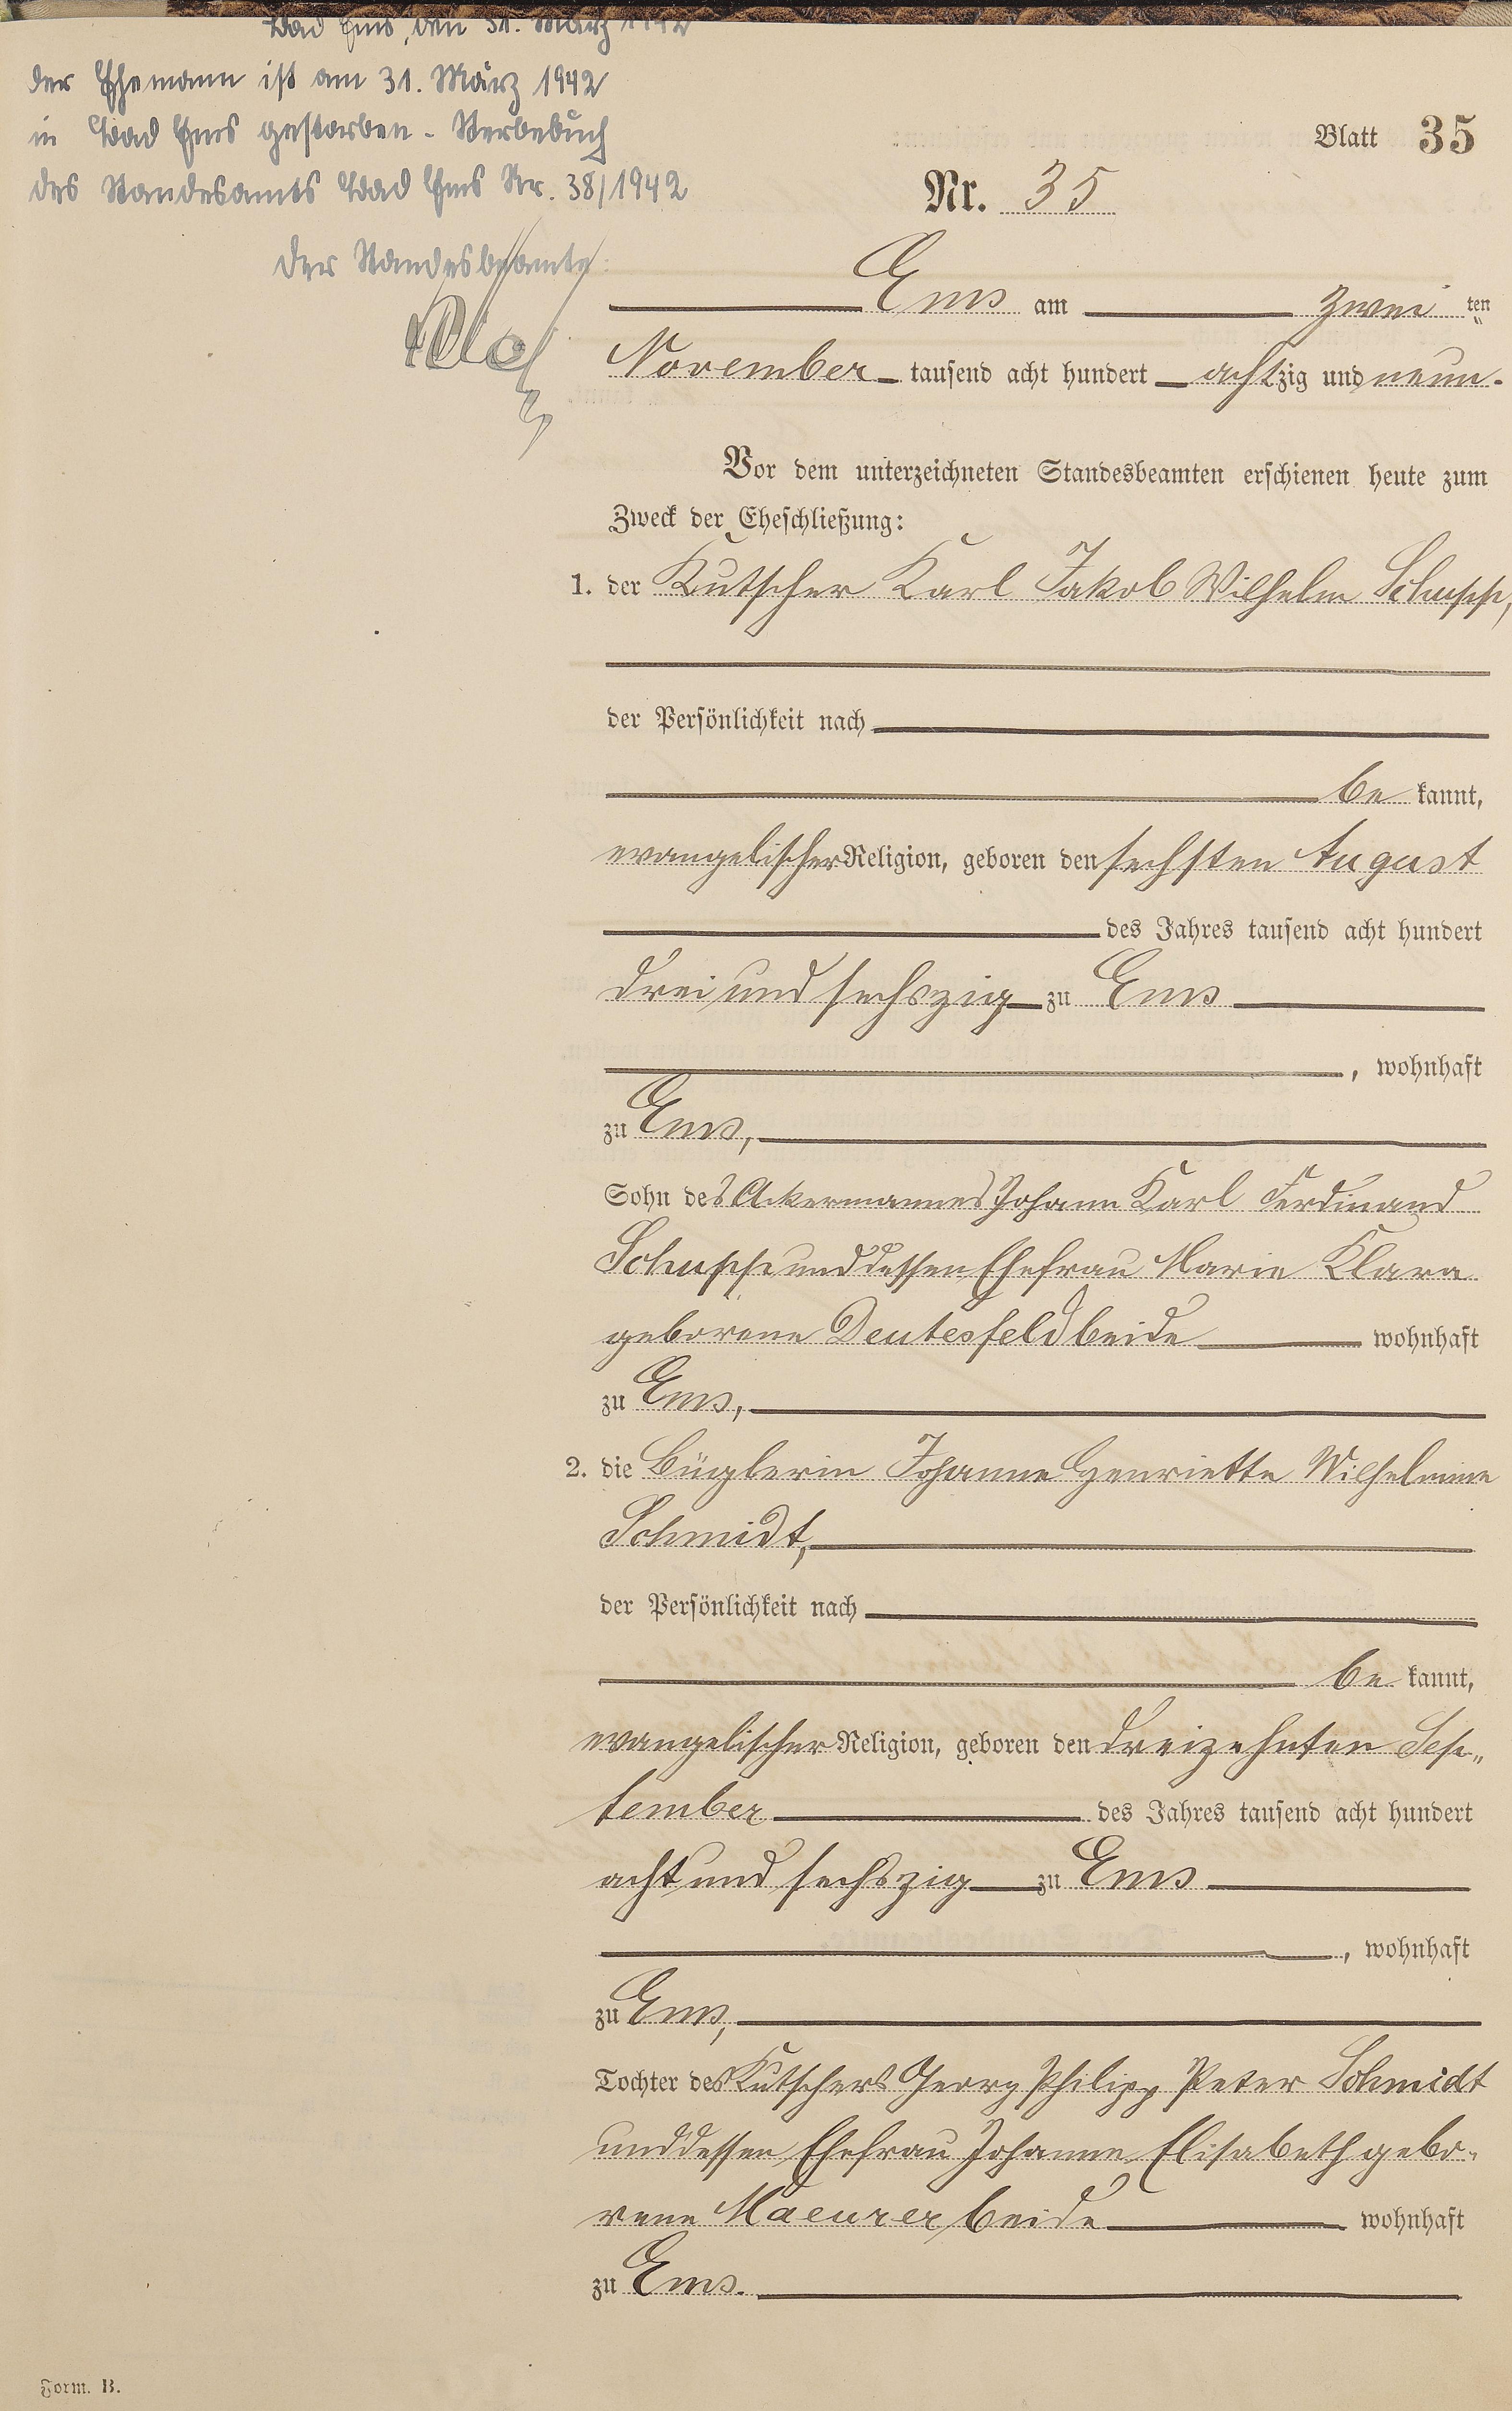 Bad Ems, den 31. März 1942
der Ehemann ist am 31. März 1942
in Bad Ems gestorben - Sterbebuch
des Standesamts Bad Ems Nr. 38/1942
der Standesbeamte
Blatt 35
Nr. 35
Ems am zwei ten
November tausend acht hundert achtzig und neun.
Vor dem unterzeichneten Standesbeamten erschienen heute zum
Zweck der Eheschließung:
1. der Kutscher Karl Jakob Wilhelm Schupp,
der Persönlichkeit nach
be kannt,
evangelischer Religion, geboren den sechsten August
des Jahres tausend acht hundert
drei und sechszig zu Ems
, wohnhaft
zu Ems,
Sohn des Ackermannes Johann Karl Ferdinand
Schupp und dessen Ehefrau Marie Klara
geborene Deutesfeld beide wohnhaft
zu Ems,
2. die Büglerin Johanne Henriette Wilhelmine
Schmidt,
der Persönlichkeit nach
be kannt,
evangelischer Religion, geboren den dreizehnten Sep„
tember des Jahres tausend acht hundert
acht und sechszig zu Ems
, wohnhaft
zu Ems,
Tochter des Kutschers Georg Philipp Peter Schmidt
und dessen Ehefrau Johanne Elisabeth gebo-
rene Maeurer beide wohnhaft
zu Ems.
Form. B.